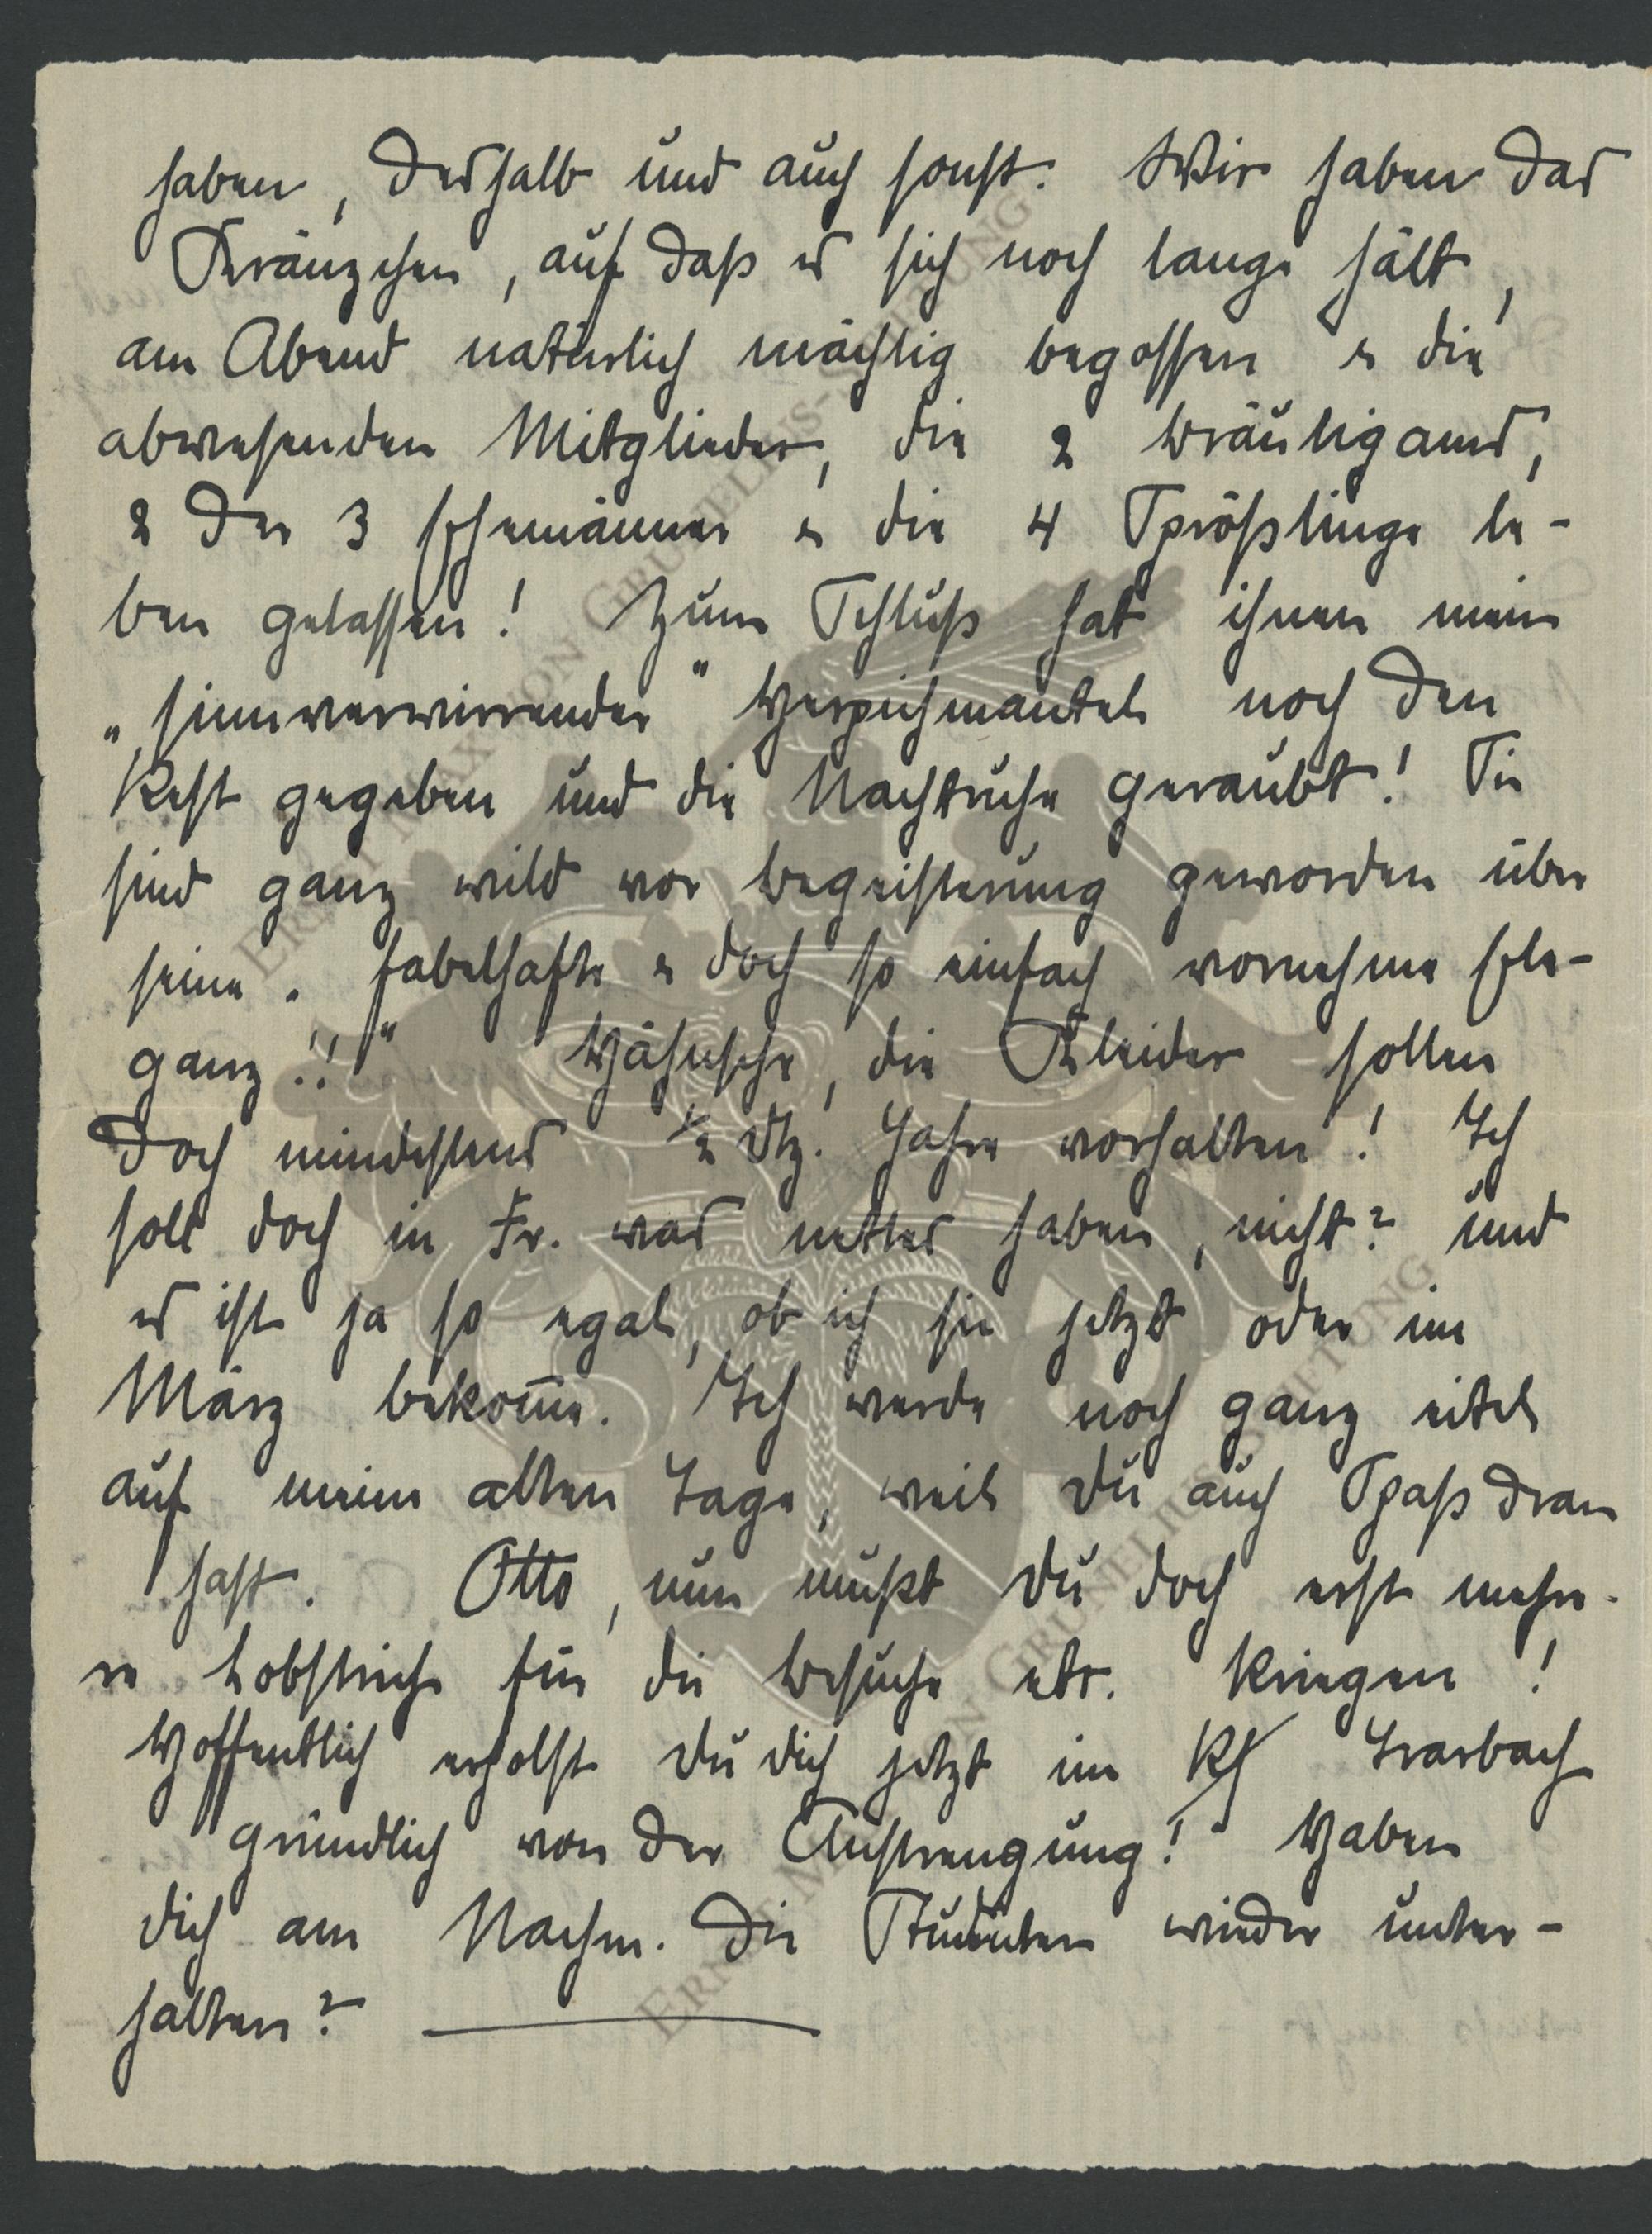 haben, deshalb und auch sonst. Wir haben das
Kränzchen, auf daß es sich noch lange hält,
am Abend natürlich mächtig begossen & die
abwesenden Mitglieder, die 2 Bräutigams,
2 der 3 Ehemänner & die 4 Sprößlinge le-
ben gelassen! Zum Schluß hat ihnen mein
„sinnverwirrender" Herpichmantel noch den
Rest gegeben und die Nachtruhe geraubt! Sie
sind ganz wild vor Begeisterung geworden über
seine „fabelhafte & doch so einfach vornehme Ele-
ganz!!" Hähnsche, die Kleider sollen
doch mindestens ½ Dtz. Jahre vorhalten! Ich
soll doch in Fr. was nettes haben, nicht? Und
es ist ja so egal, ob ich sie jetzt oder im
März bekom̅e. Ich werde noch ganz eitel
auf meine alten Tage, weil Du auch Spaß dran
hast. Otto, nun mußt Du doch erst mehre-
re Lobstriche für die Besuche etc. kriegen!
Hoffentlich erholst Du Dich jetzt im Trarbach
gründlich von der Anstrengung! Haben
Dich am Nachm. die Studenten wieder unter-
halten?
ERNST MAX VON GRUNELIUS-STIFTUNG
ERNST MAX VON GRUNELIUS-STIFTUNG